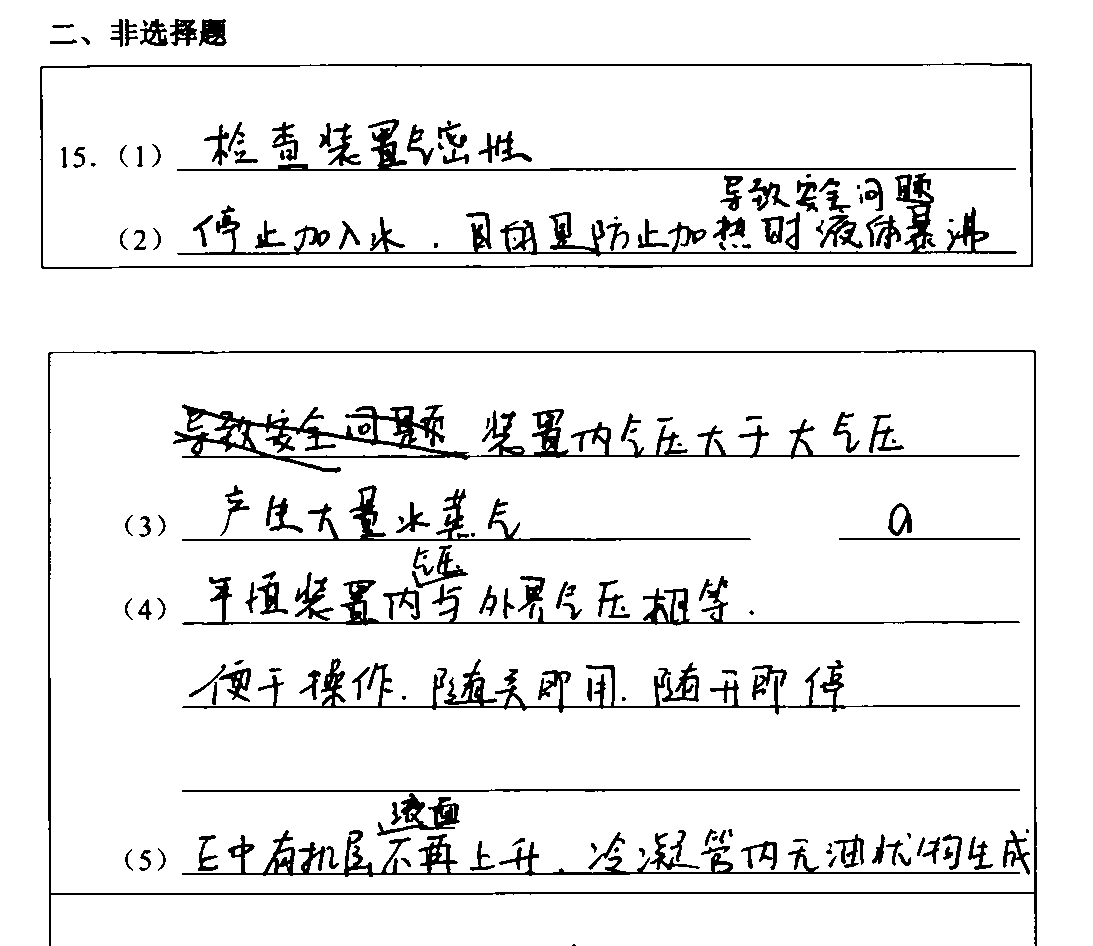 二、非选择题
15.（1）检查装置气密性
导致安全问题
（2）停止加入水．目的是防止加热时液体暴沸
导致安全问题 装置内气压大于大气压
（3）产生大量水蒸气 a
气压
（4）平恒装置内与外界气压相等．
便于操作．随关即用．随开即停
液面
（5）E中有机层不再上升．冷凝管内无油状物生成